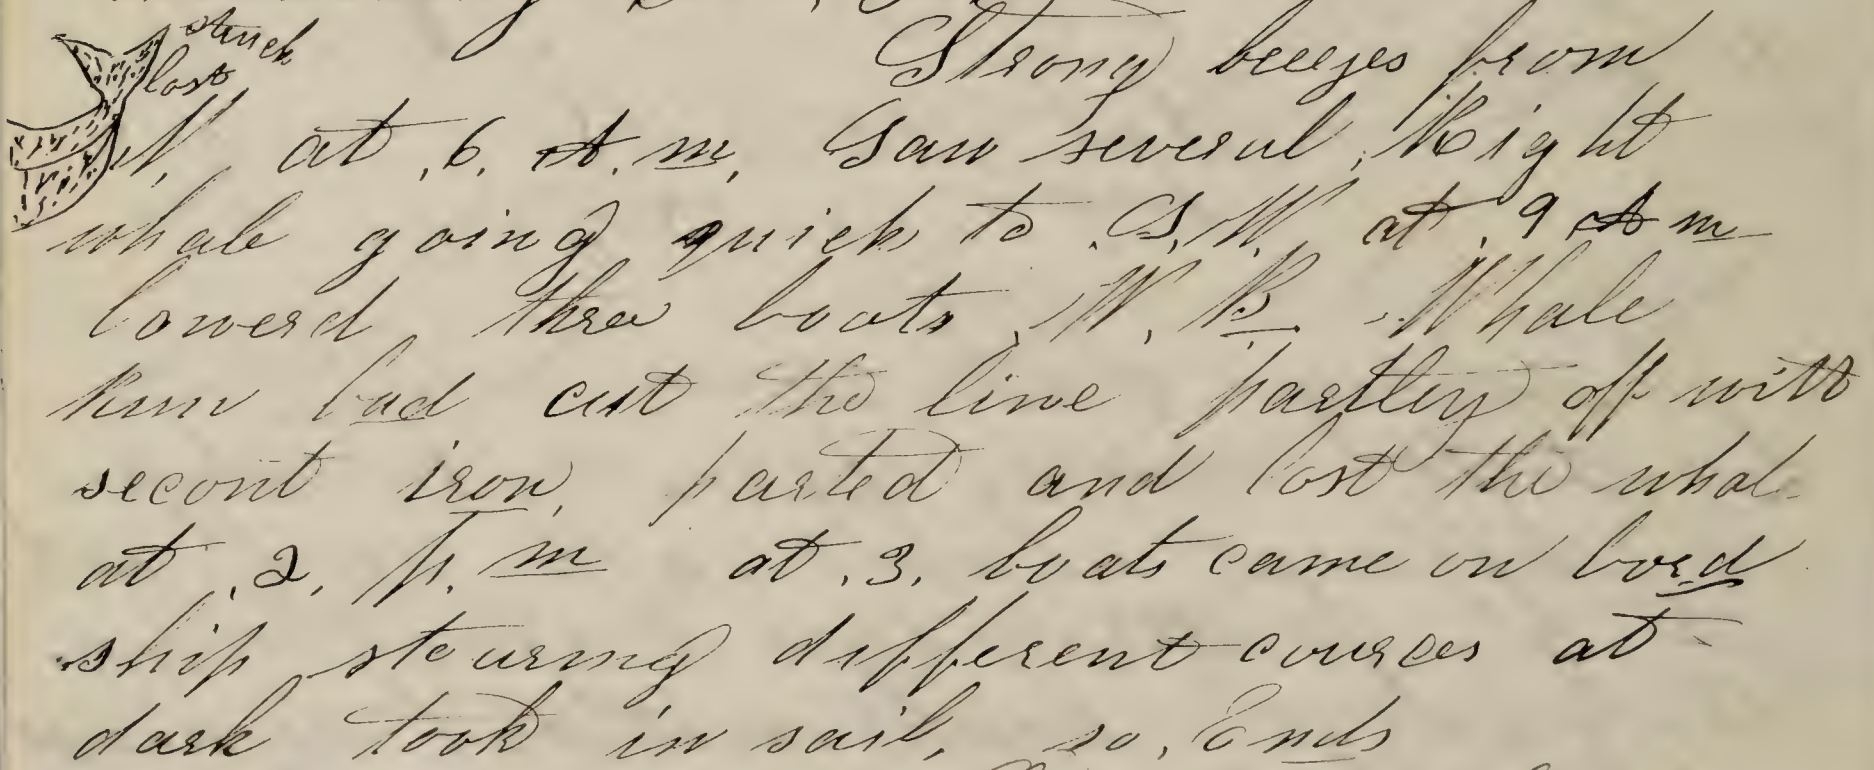 struck
lost
Strong beezes from
N. at .6. A. m. Saw several Right
whale going quick to .S.W. at .9 A m
lowerd three boats. W. B. Whale
run bad cut the line partley off with
secont iron, parted and lost the whal
at .2. p. m at .3. boats came on bord
ship stearing different cources at
dark took in sail, so, Ends